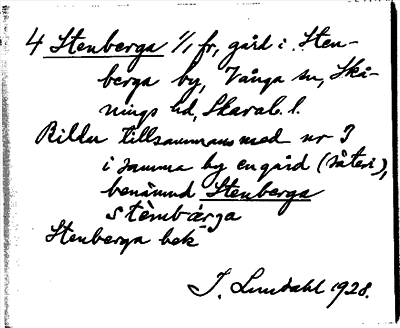 4 Stenberga 1/1 fr, gård i Sten-
berga by, Vånga sn, Skå-
nings hd, Skarab. l.
Bildar tillsammans med nr 3
i samma by en gård (säteri),
benämnd Stenberga
stèmbærga
Stenberga bek
I. Lundahl 1928.